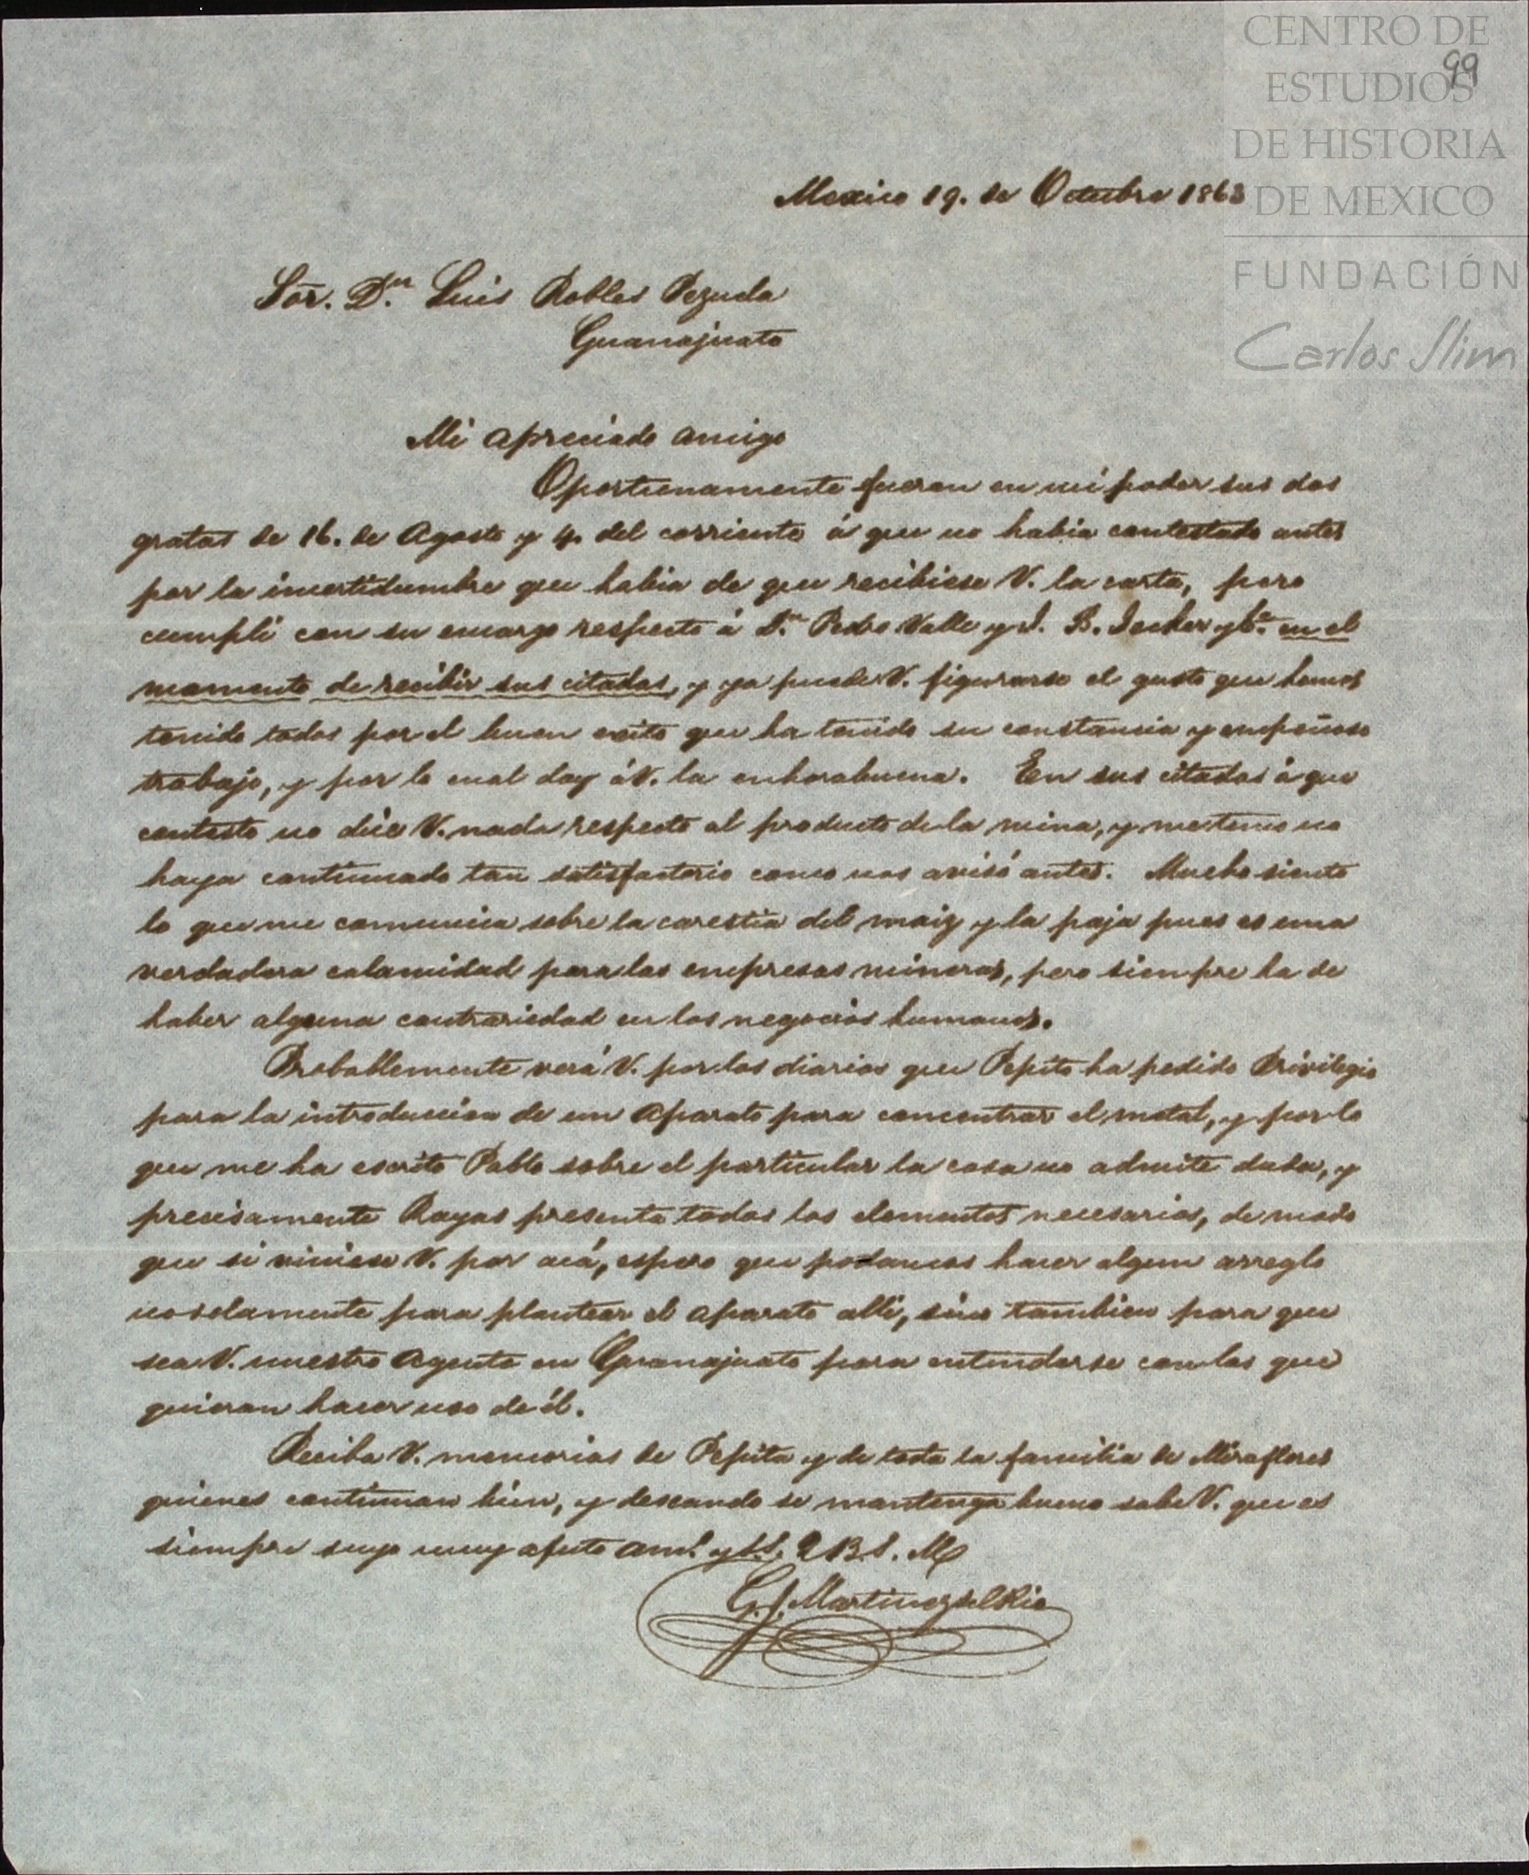 CENTRO DE
99
ESTUDIOS
DE HISTORIA
DE MEXICO
FUNDACIÓN
Carlos Slim
Mexico 19. de Octubre 1863
Sor. Dn. Luis Robles Pezuela
Guanajuato
Mi apreciado amigo
Oportunamente fueron en mi poder sus dos
gratas de 16. de Agosto y 4. del corriente á que no habia contestado antes
por la incertidumbre que habia de que recibiese V. la carta, pero
cumpli con su encargo respecto á Dn. Pedro Valle y J. B. Jecker y Ca. en el
momento de recibir sus citadas, y ya puede V. figurarse el gusto que hemos
tenido todos por el buen exito que ha tenido su constancia y empeñoso
trabajo, y por lo cual doy á V. la enhorabuena. En sus citadas á que
contesto no dice V. nada respecto al producto de la mina, y me temo no
haya continuado tan satisfactorio como nos avisó antes. Mucho siento
lo que me comunica sobre la carestia del maiz y la paja pues es una
verdadera calamidad para las empresas mineras, pero siempre ha de
haber alguna contrariedad en los negocios humanos.
Probablemente verá V. por los diarios que Pepito ha pedido Privilegio
para la introduccion de un aparato para concentrar el metal, y por lo
que me ha escrito Pablo sobre el particular la cosa no admite duda, y
precisamente Rayas presenta todos los elementos necesarios, de modo
que si viniese V. por acá, espero que podamos hacer algun arreglo
no solamente para plantear el aparato alli, sino tambien para que
sea V. nuestro Agente en Guanajuato para entenderse con los que
quieran hacer uso de él.
Reciba V. memorias de Pepita y de toda la familia de Miraflores
quienes continuan bien, y deseando se mantenga bueno sabe V. que es
siempre suyo muy afecto am.o y S.S. Q B. S. M
G. J. Martinez del Rio